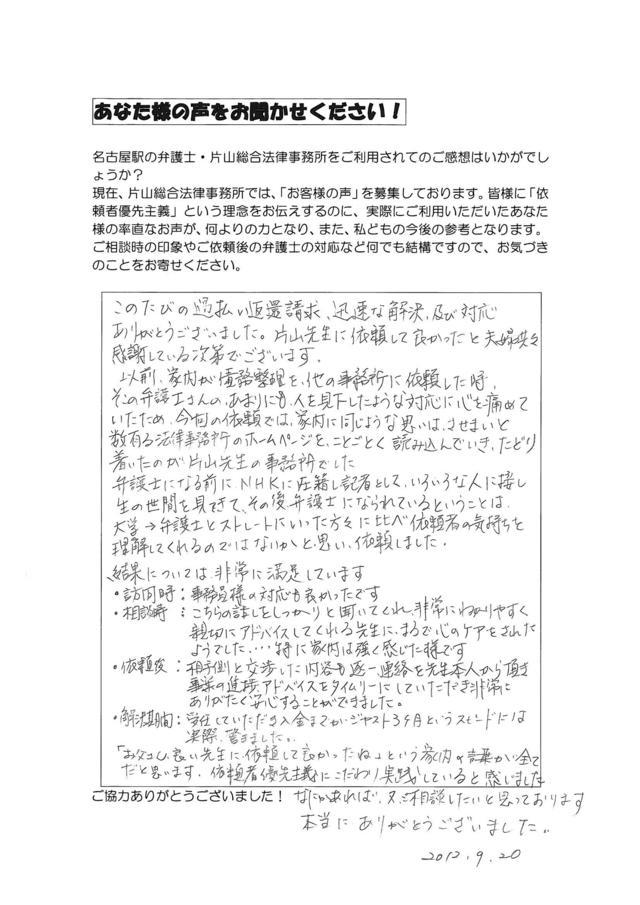 あなた様の声をお聞かせください！
名古屋駅の弁護士・片山総合法律事務所をご利用されてのご感想はいかがでし
ょうか？
現在、片山総合法律事務所では、「お客様の声」を募集しております。皆様に「依
頼者優先主義」という理念をお伝えするのに、実際にご利用いただいたあなた
様の率直なお声が、何よりの力となり、また、私どもの今後の参考となります。
ご相談時の印象やご依頼後の弁護士の対応など何でも結構ですので、お気づき
のことをお寄せください。
このたびの過払い返還請求、迅速な解決、及び対応
ありがとうございました。片山先生に依頼して良かったと夫婦共々
感謝している次第でございます。
以前、家内が債務整理を、他の事務所に依頼した時、
その弁護士さんの、あまりにも、人を見下したような対応に心を痛めて
いたため、今回の依頼では、家内に同じような思いは、させまいと
数有る法律事務所のホームページを、ことごとく読み込んでいき、たどり
着いたのが片山先生の事務所でした
弁護士になる前にNHKに在籍し記者として、いろいろな人に接し
生の世間を見てきて、その後、弁護士になられているということは、
大学→弁護士とストレートにいった方々に比べ依頼者の気持ちを
理解してくれるのではないかと思い、依頼しました。
結果については、非常に満足しています
・訪問時：事務員様の対応も良かったです
・相談時：こちらの話しをしっかりと聞いてくれ、非常にわかりやすく
親切にアドバイスしてくれる先生に、まるで心のケアをされた
ようでした…特に家内は強く感じた様です
・依頼後：相手側と交渉した内容も逐一連絡を先生本人から頂き
事案の進捗、アドバイスをタイムリーにしていただき非常に
ありがたく安心することができました。
・解決期間：受任していただき入金までがジャスト3ヶ月というスピードには
実際、驚きました。
「お父さん、良い先生に、依頼して良かったね」という家内の言葉が全て
だと思います。依頼者優先主義にこだわり実践していると感じました
ご協力ありがとうございました！
なにかあれば、又ご相談したいと思っております
本当にありがとうございました。
2012.9.20